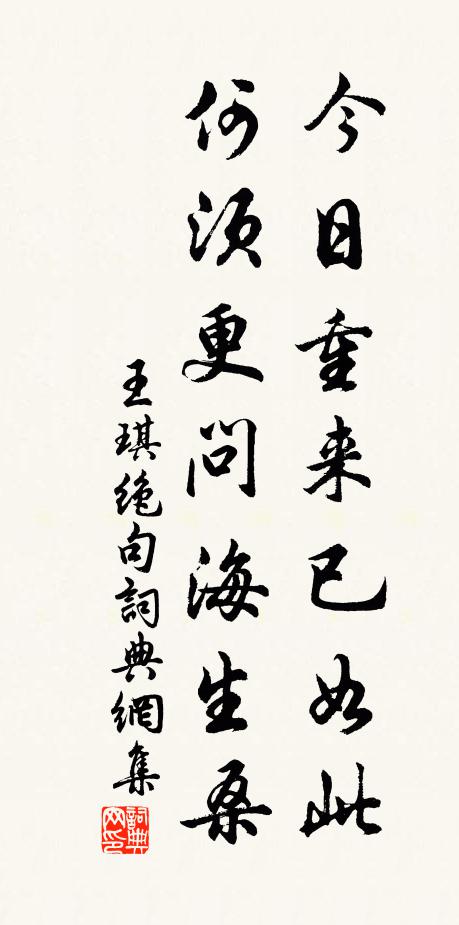 今日重来已如此
何须更问海生桑
王琪绝句詞典網集
詞典网印